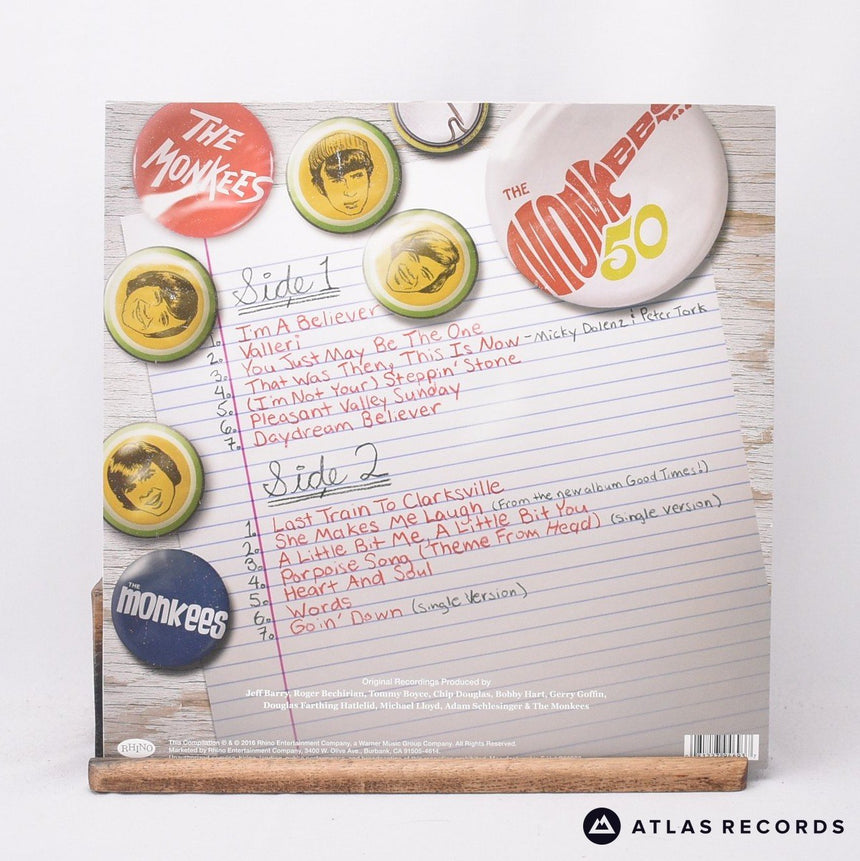 THE
MONKEES
THE
MONKEES
50
Side 1
1. I'm A Believer
2. Valleri
3. You Just May Be The One
4. That Was Then, This Is Now - Micky Dolenz & Peter Tork
5. (I'm Not Your) Steppin' Stone
6. Pleasant Valley Sunday
7. Daydream Believer
Side 2
1. Last Train To Clarksville
2. She Makes Me Laugh (From the new album Good Times!)
3. A Little Bit Me, A Little Bit You
4. Porpoise Song (Theme From Head) (single version)
5. Heart And Soul
6. Words
7. Goin' Down (single version)
THE
monkees
Original Recordings Produced by
Jeff Barry, Roger Bechirian, Tommy Boyce, Chip Douglas, Bobby Hart, Gerry Goffin,
Douglas Farthing Hatlelid, Michael Lloyd, Adam Schlesinger & The Monkees
RHINO
This Compilation ℗ & © 2016 Rhino Entertainment Company, a Warner Music Group Company. All Rights Reserved.
Marketed by Rhino Entertainment Company, 3400 W. Olive Ave., Burbank, CA 91505-4614.
ATLAS RECORDS